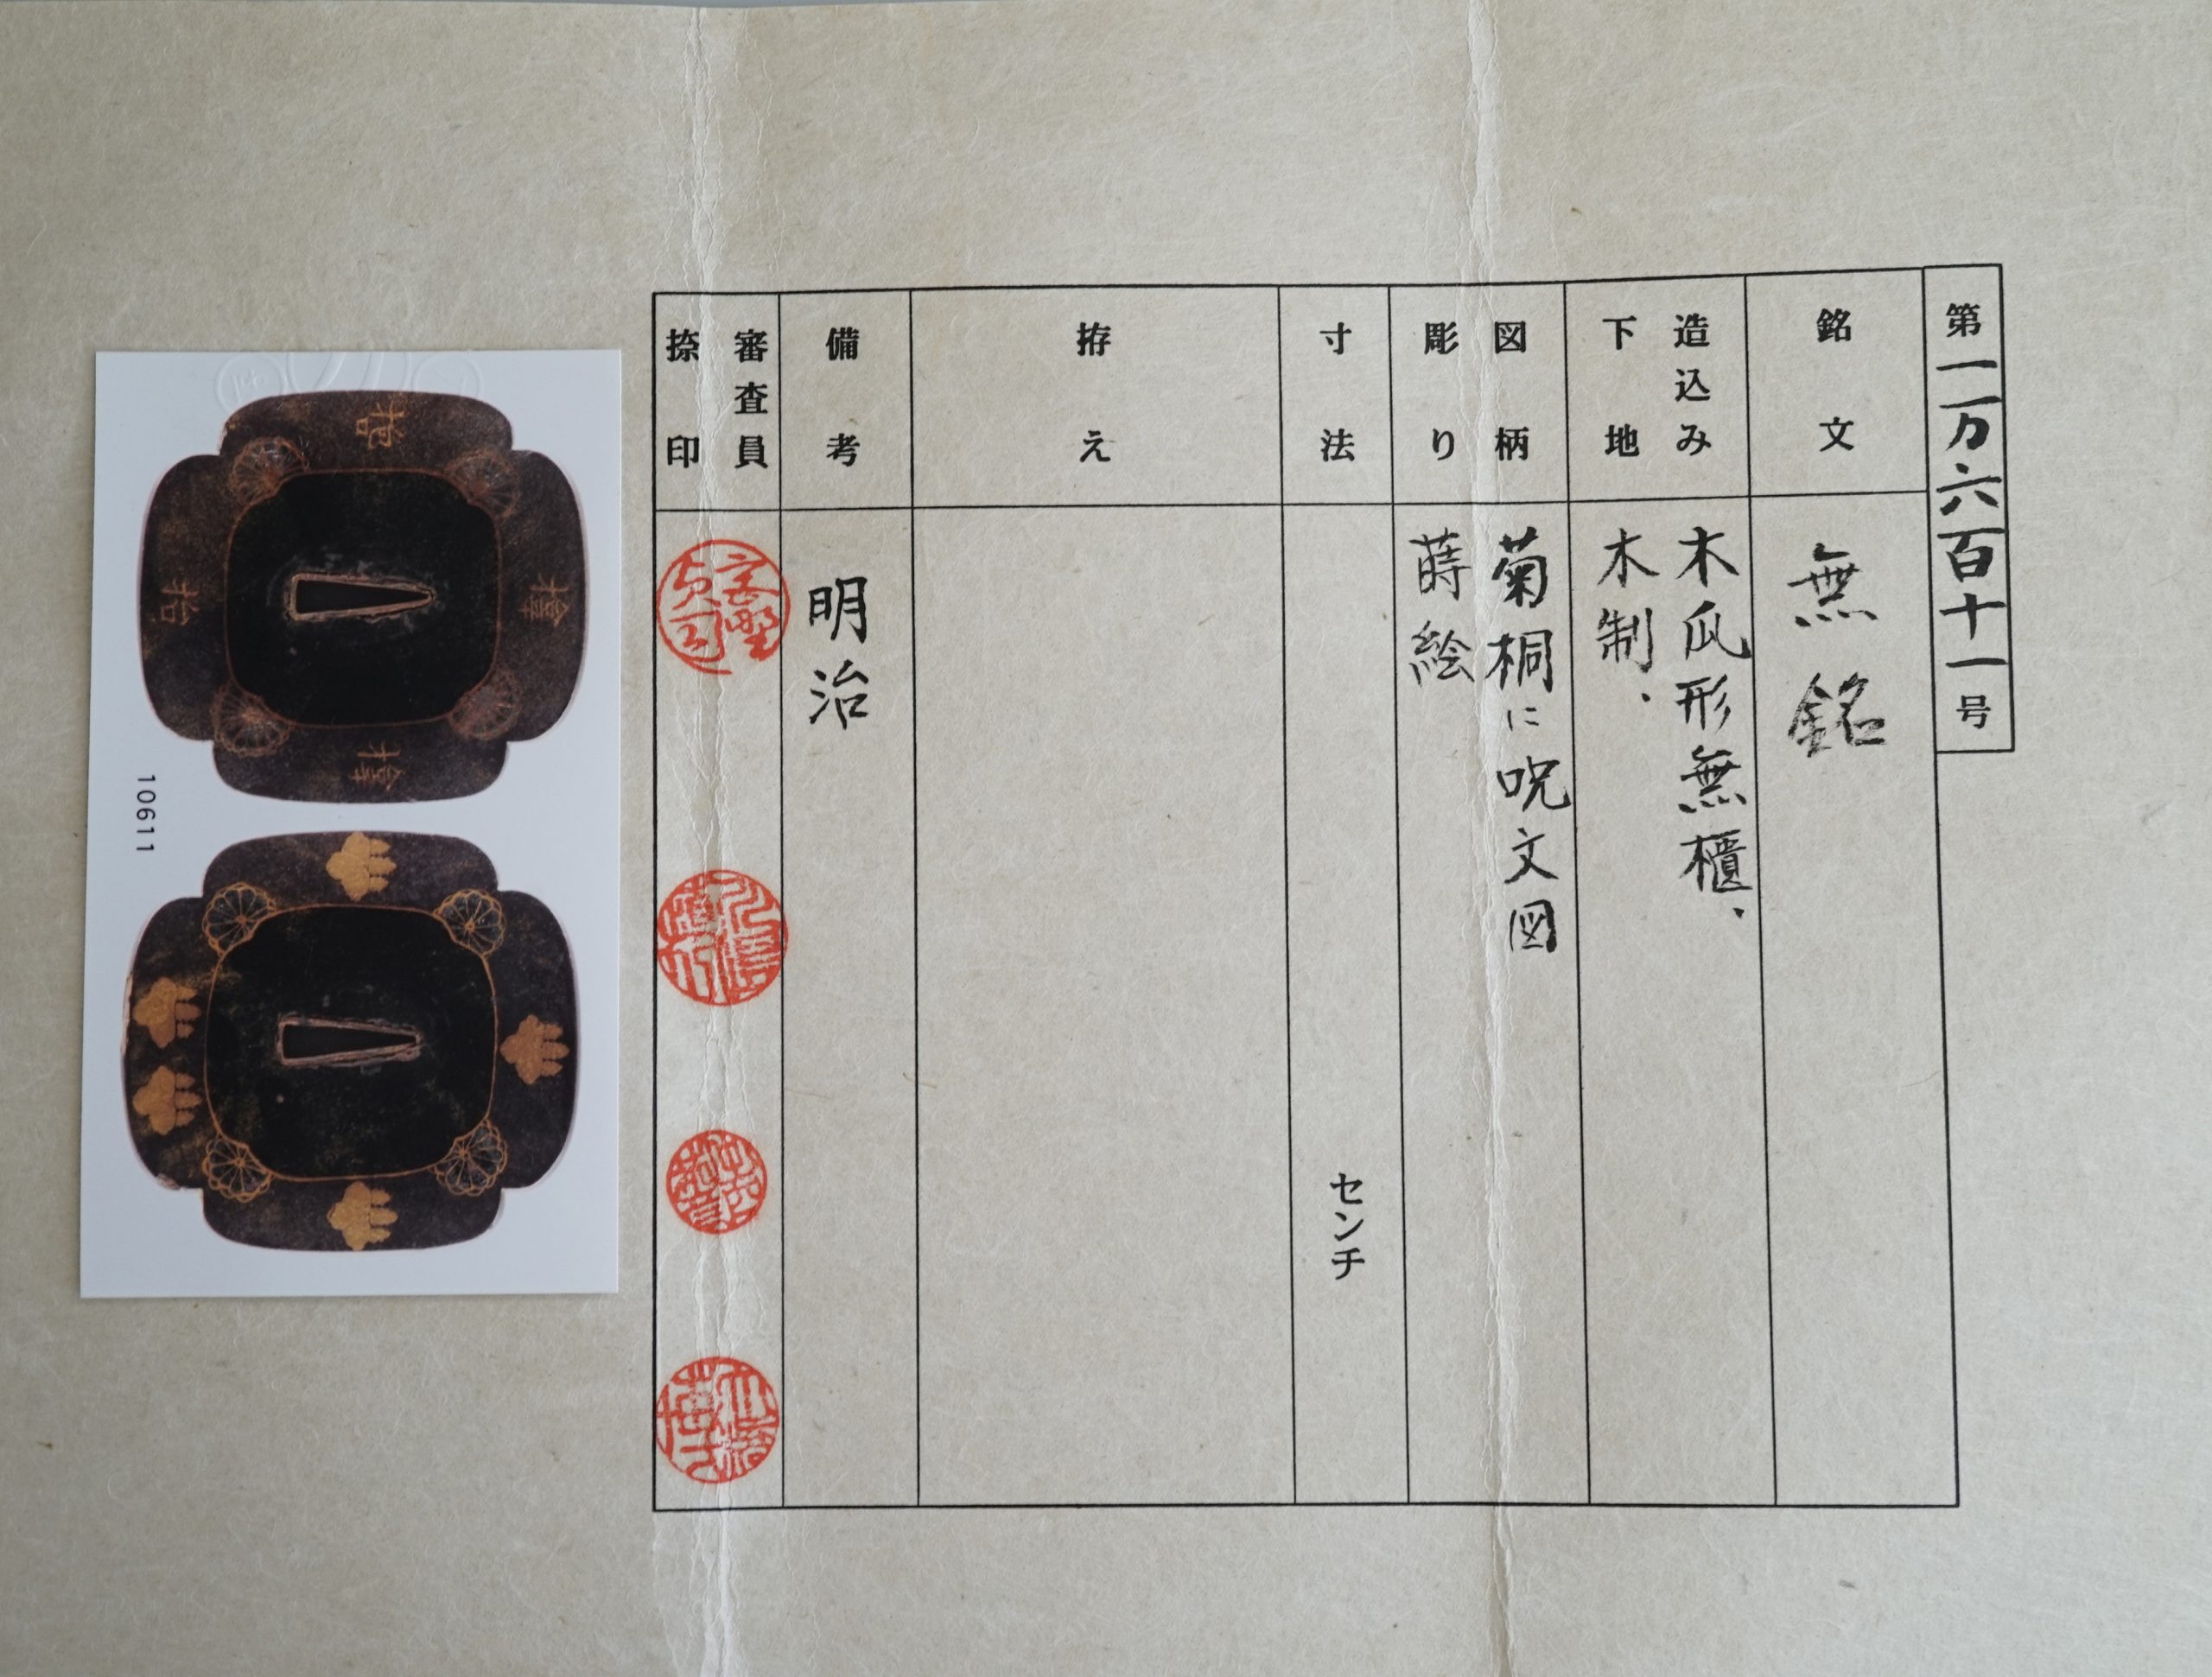 第一万六百十一号
銘文
無銘
造込み
下地
木瓜形無櫃、
木制、
図柄
彫り
菊桐に呪文図
蒔絵
寸法
センチ
拵え
備考
明治
審査員
捺印
10611